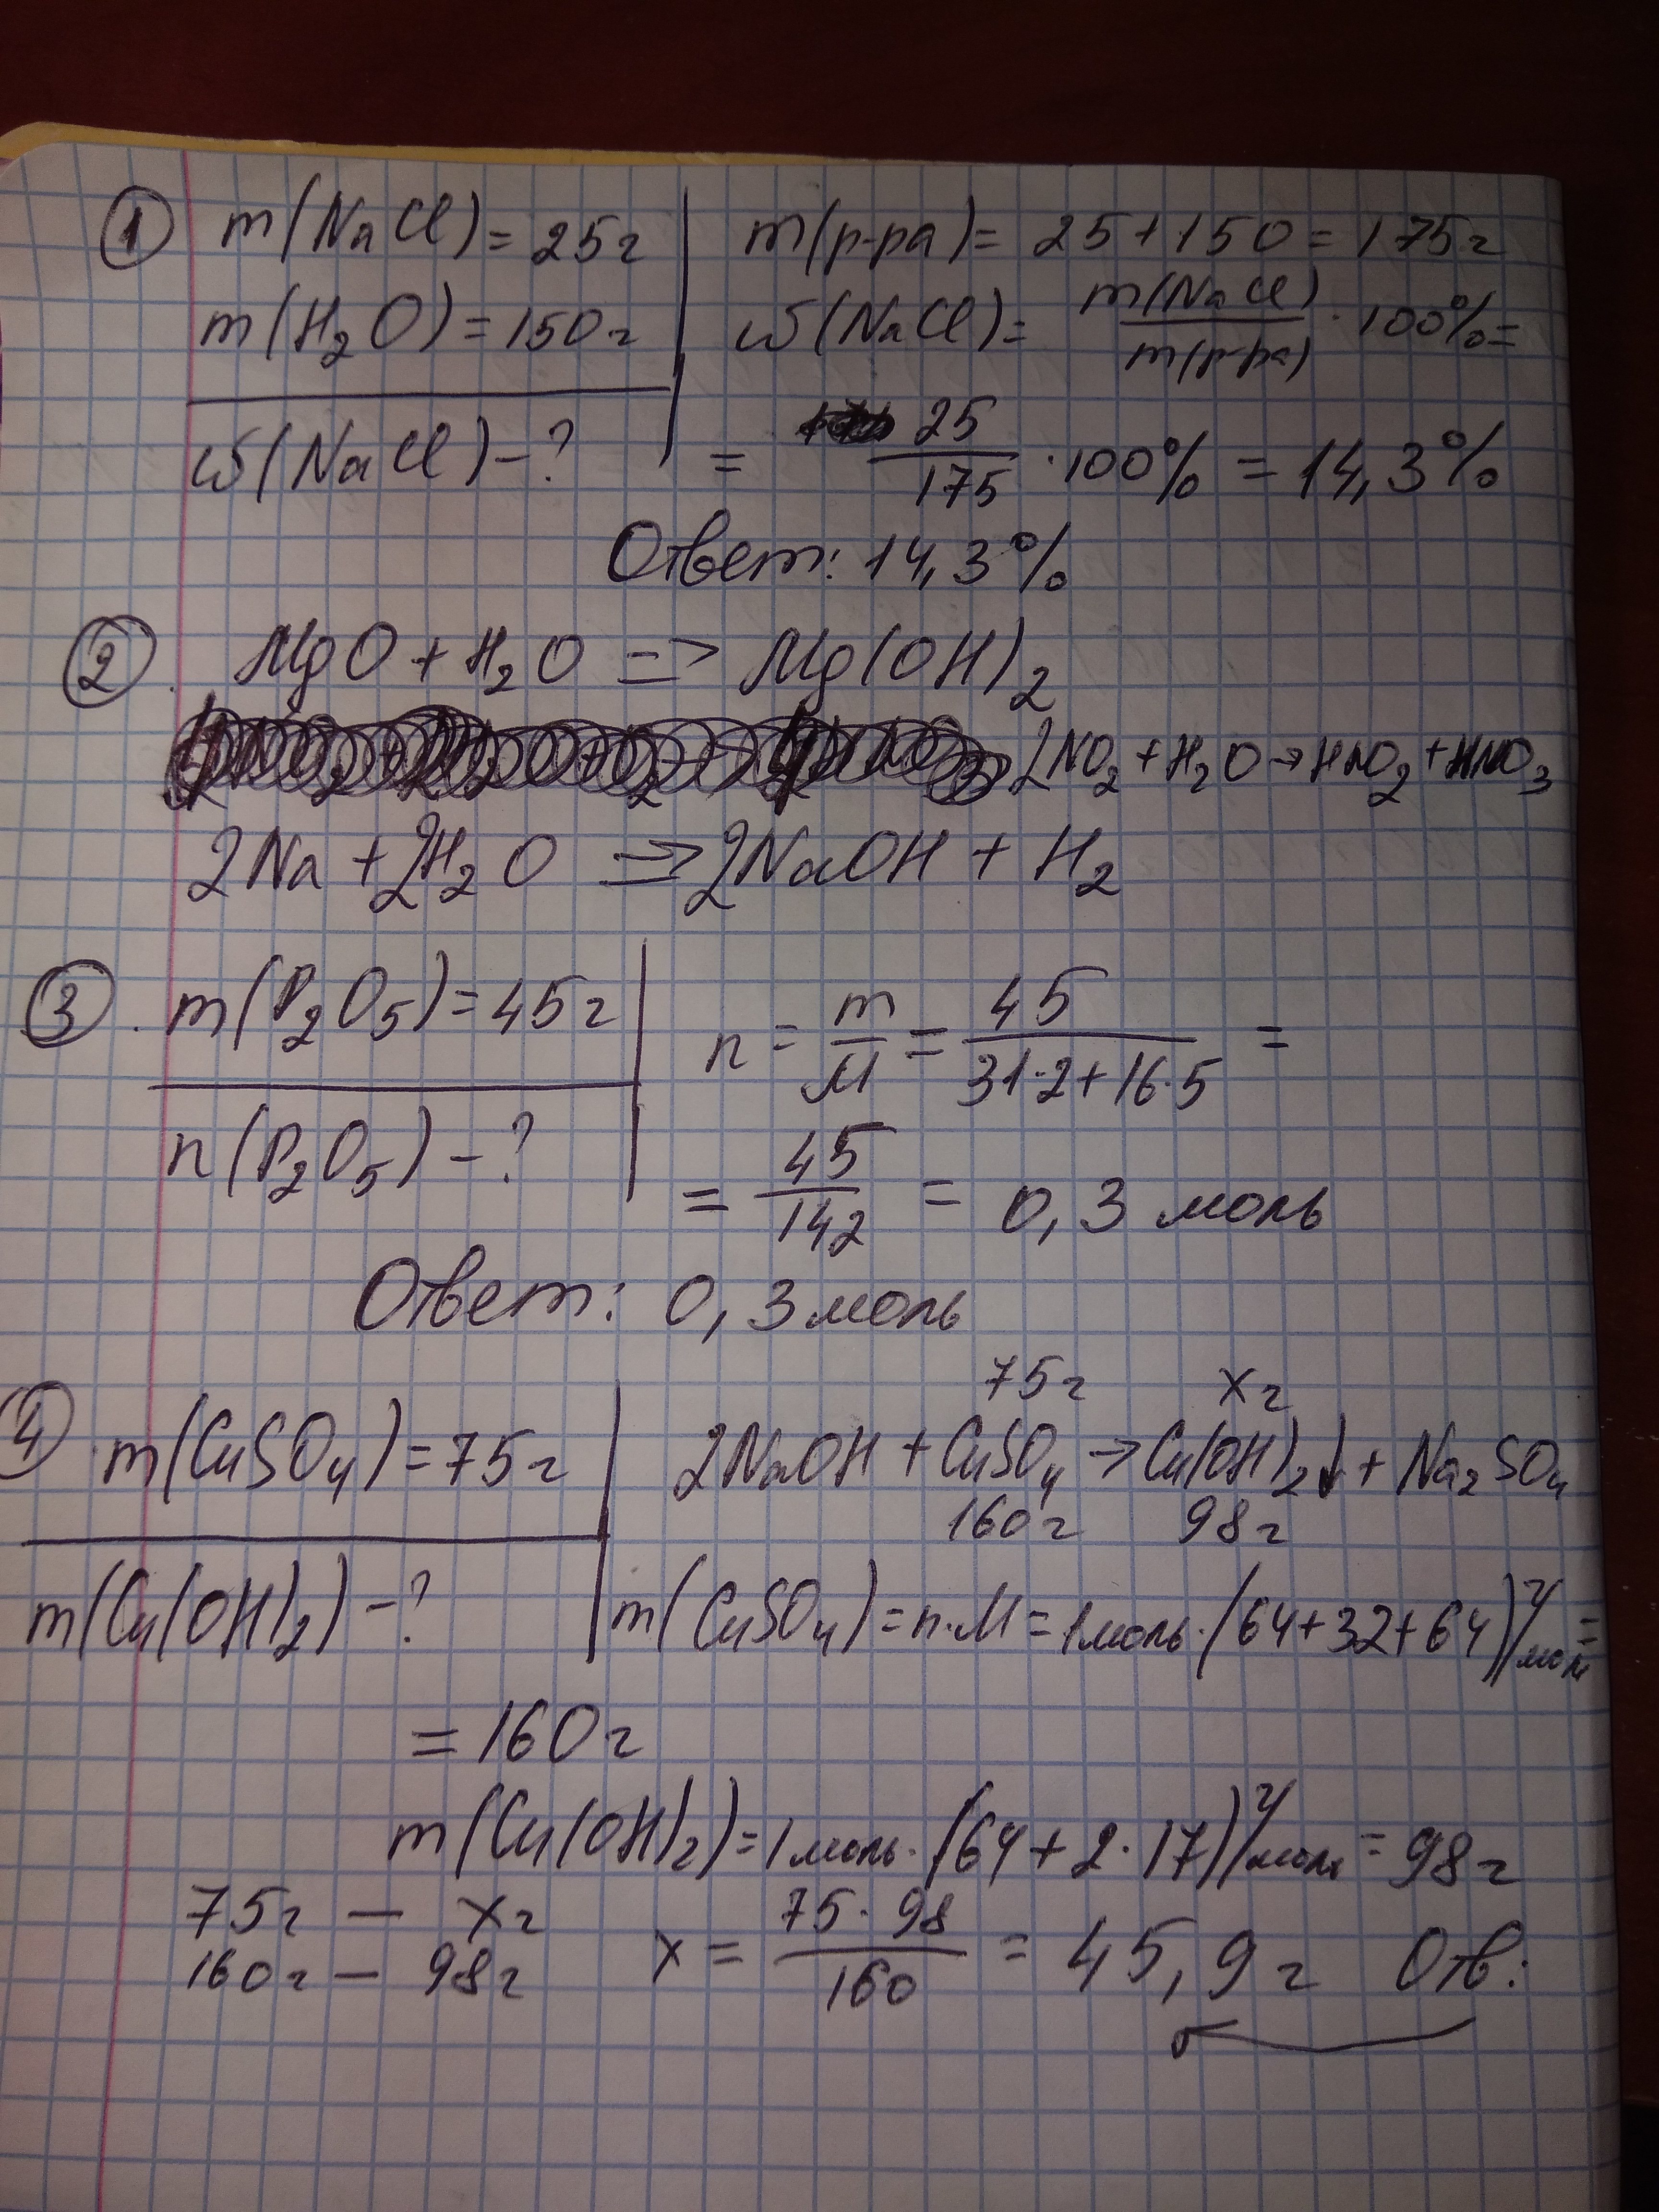 1 m(NaCl)=25г | m(р-ра)= 25+150=175г
m(H₂O)=150г | ω(NaCl)= m(NaCl)/m(р-ра) · 100%=
ω(NaCl)-? = 25/175 · 100% = 14,3%
Ответ: 14,3%
2 MgO + H₂O => Mg(OH)₂
2NO₂+H₂O→HNO₂+HNO₃
2Na+2H₂O => 2NaOH + H₂
3 m(P₂O₅)=45г | n = m/M = 45/(31·2+16·5) =
n(P₂O₅)-? = 45/142 = 0,3 моль
Ответ: 0,3 моль
75г xг
4 m(CuSO₄)=75г | 2NaOH+CuSO₄→Cu(OH)₂↓+Na₂SO₄
160г 98г
m(Cu(OH)₂)-? | m(CuSO₄)=n·M=1моль·(64+32+64)г/моль=
=160г
m(Cu(OH)₂)=1моль·(64+2·17)г/моль=98г
75г — xг
160г — 98г
x = 75·98/160 = 45,9г Отв: